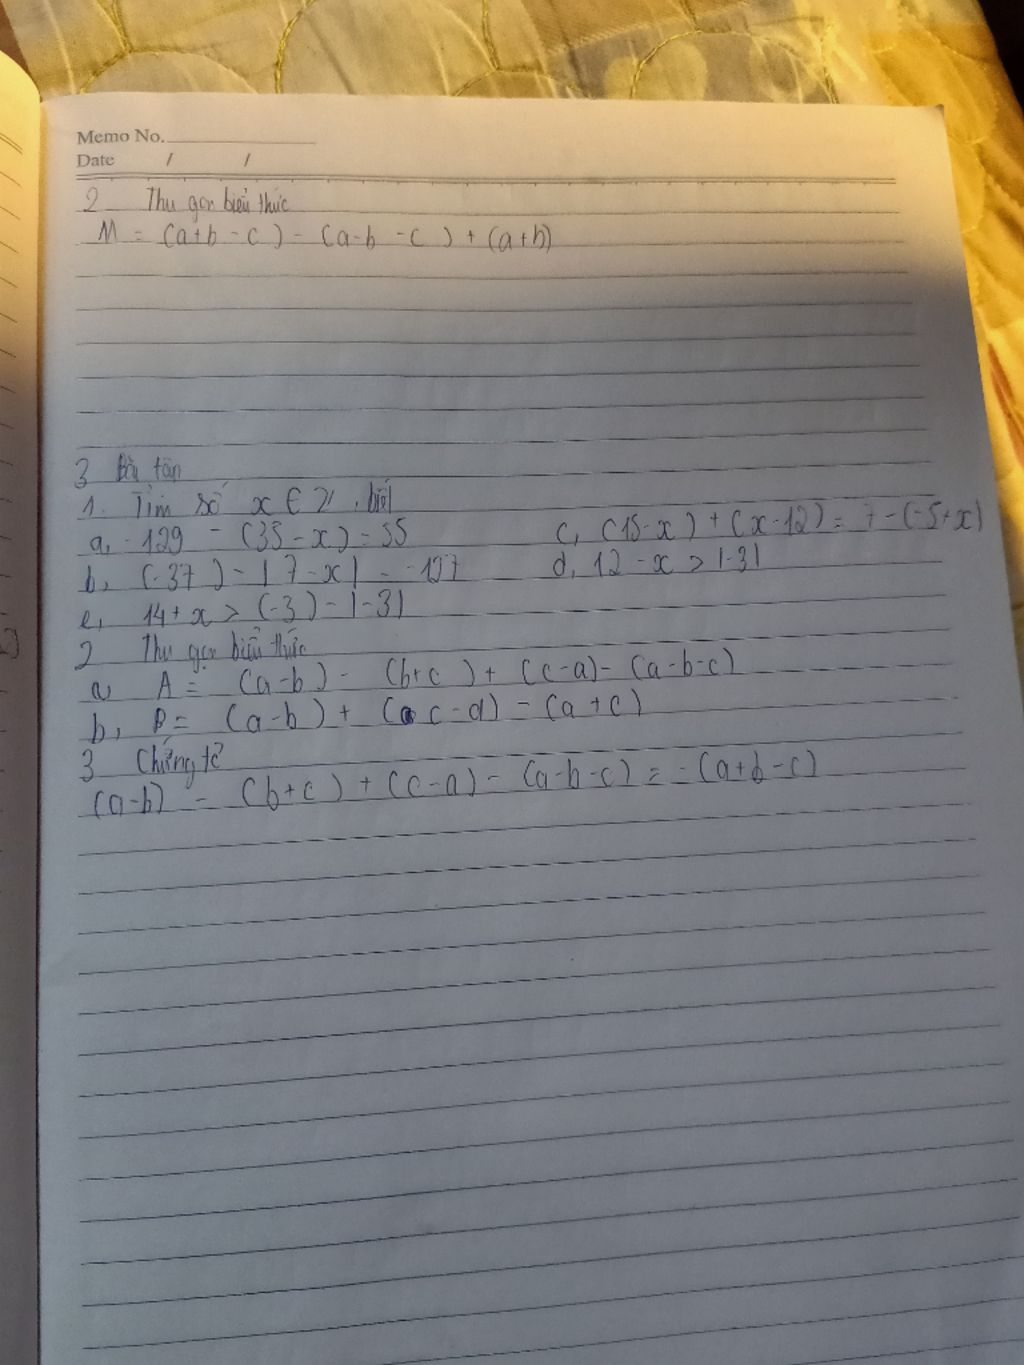 Memo No.
Date / /
2 Thu gọn biểu thức
M = (a+b-c) - (a-b-c) + (a+b)
3 Bài tập
1. Tìm số x ∈ Z, biết
a, -129 - (35-x) = 55
c, (15-x) + (x-12) = 7 - (-5+x)
b, (-37) - |7-x| = -127
d, 12 - x > |-3|
e, 14 + x > (-3) - |-3|
2 Thu gọn biểu thức
a A = (a-b) - (b+c) + (c-a) - (a-b-c)
b, B = (a-b) + (c-d) - (a+c)
3 Chứng tỏ
(a-b) - (b+c) + (c-a) - (a-b-c) = -(a+b-c)